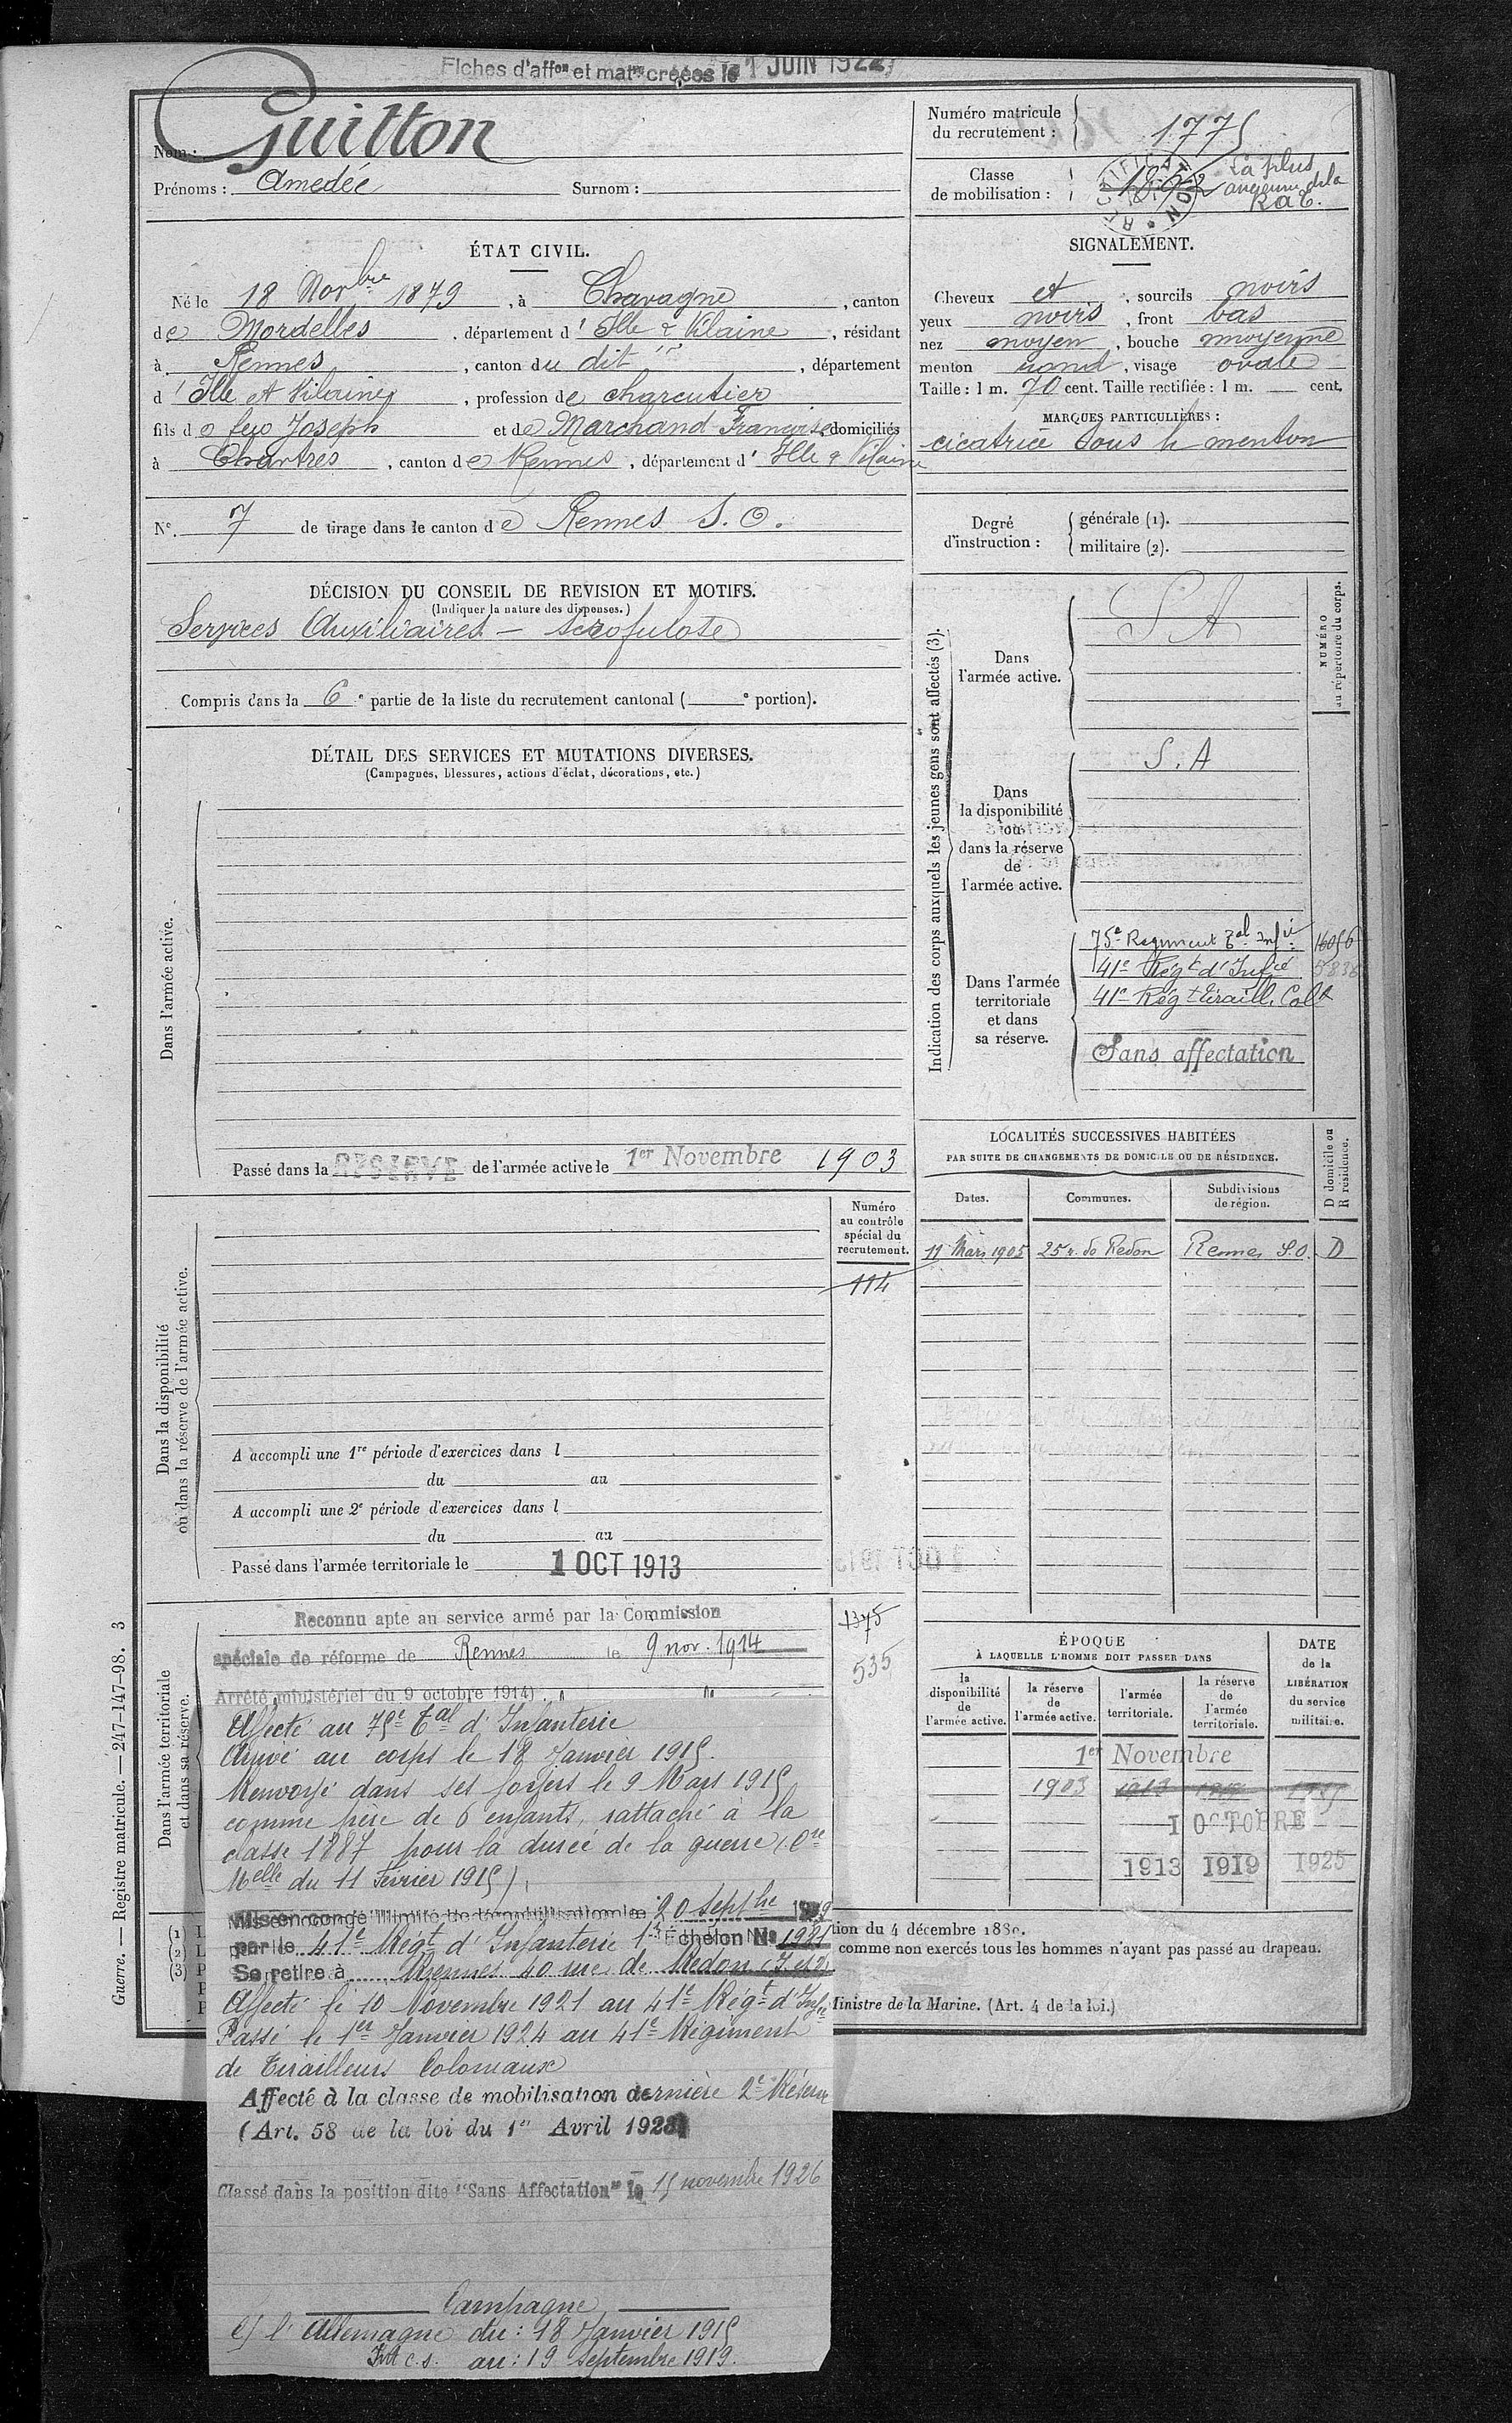 Fiches d'affon et matre créées le 1 JUIN 1922
Nom : Guitton
Prénoms : Amedée Surnom :
Numéro matricule du recrutement : 1775
Classe de mobilisation : La plus ancienne de la R.a.T.
ÉTAT CIVIL.
Né le 18 Novbre 1879, à Chavagne, canton
de Mordelles, département d'Ille & Vilaine, résidant
à Rennes, canton du dit, département
d'Ille et Vilaine, profession de charcutier
fils de feu Joseph et de Marchand Françoise domiciliés
à Chartres, canton de Rennes, département d'Ille & Vilaine
N° 7 de tirage dans le canton de Rennes S. O.
SIGNALEMENT.
Cheveux et, sourcils noirs
yeux noirs, front bas
nez moyen, bouche moyenne
menton rond, visage ovale
Taille : 1 m. 70 cent. Taille rectifiée : 1 m. cent.
MARQUES PARTICULIÈRES :
cicatrice sous le menton
Degré d'instruction :
générale (1).
militaire (2).
DÉCISION DU CONSEIL DE REVISION ET MOTIFS.
(Indiquer la nature des dispenses.)
Services Auxiliaires – scrofulose
Compris dans la 6e partie de la liste du recrutement cantonal ( e portion).
DÉTAIL DES SERVICES ET MUTATIONS DIVERSES.
(Campagnes, blessures, actions d'éclat, décorations, etc.)
Dans l'armée active.
Passé dans la RESERVE de l'armée active le 1er Novembre 1903
Indication des corps auxquels les jeunes gens sont affectés (3).
NUMÉRO au répertoire du corps.
Dans l'armée active.
S A
Dans la disponibilité ou dans la réserve de l'armée active.
S. A
Dans l'armée territoriale et dans sa réserve.
75e Regiment Tal Infie
41e Régt d'Infie
41e Régt Tiraill. Colx
Sans affectation
LOCALITÉS SUCCESSIVES HABITÉES
PAR SUITE DE CHANGEMENTS DE DOMICILE OU DE RÉSIDENCE.
Dates. Communes. Subdivisions de région. D domicile ou R résidence.
11 Mars 1905 25 r. de Redon Rennes S.O. D
Dans la disponibilité ou dans la réserve de l'armée active.
Numéro au contrôle spécial du recrutement.
114
A accompli une 1re période d'exercices dans l
du au
A accompli une 2e période d'exercices dans l
du au
Passé dans l'armée territoriale le 1 OCT 1913
Dans l'armée territoriale et dans sa réserve.
1375
535
Reconnu apte au service armé par la Commission
spéciale de réforme de Rennes le 9 nov. 1914
Arrêté ministériel du 9 octobre 1914)
Affecté au 75e Tal d'Infanterie
Arrivé au corps le 18 Janvier 1915.
Renvoyé dans ses foyers le 9 Mars 1915
comme père de 6 enfants, rattaché à la
classe 1887 pour la durée de la guerre (Ore
Melle du 11 Février 1915).
Mis en congé illimité de démobilisation le 20 Septbre 1919
par le 41e Régt d'Infanterie Echelon No 1921
Se retire à Rennes 40 rue de Redon
Affecté le 10 Novembre 1921 au 41e Régt d'Infie
Passé le 1er Janvier 1924 au 41e Régiment
de Tirailleurs Coloniaux
Affecté à la classe de mobilisation dernière 2e Réserve
(Art. 58 de la loi du 1er Avril 1923)
Classé dans la position dite "Sans Affectation" le 15 novembre 1926
Campagne
C/ l'Allemagne du : 18 Janvier 1915
au : 19 Septembre 1919.
ÉPOQUE
À LAQUELLE L'HOMME DOIT PASSER DANS
la disponibilité de l'armée active. la réserve de l'armée active. l'armée territoriale. la réserve de l'armée territoriale.
DATE de la LIBÉRATION du service militaire.
1er Novembre
1903 1913 1919
1 OCTOBRE
1913 1919 1925
tion du 4 décembre 1889.
comme non exercés tous les hommes n'ayant pas passé au drapeau.
Ministre de la Marine. (Art. 4 de la loi.)
(1)
(2)
(3)
Guerre. — Registre matricule. — 247-147-98. 3